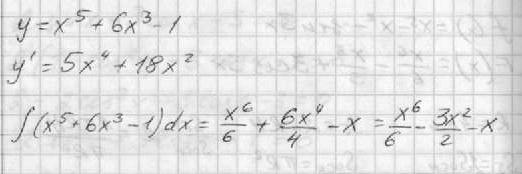 y = x⁵ + 6x³ - 1
y' = 5x⁴ + 18x²
∫(x⁵ + 6x³ - 1) dx = x⁶/6 + 6x⁴/4 - x = x⁶/6 - 3x²/2 - x